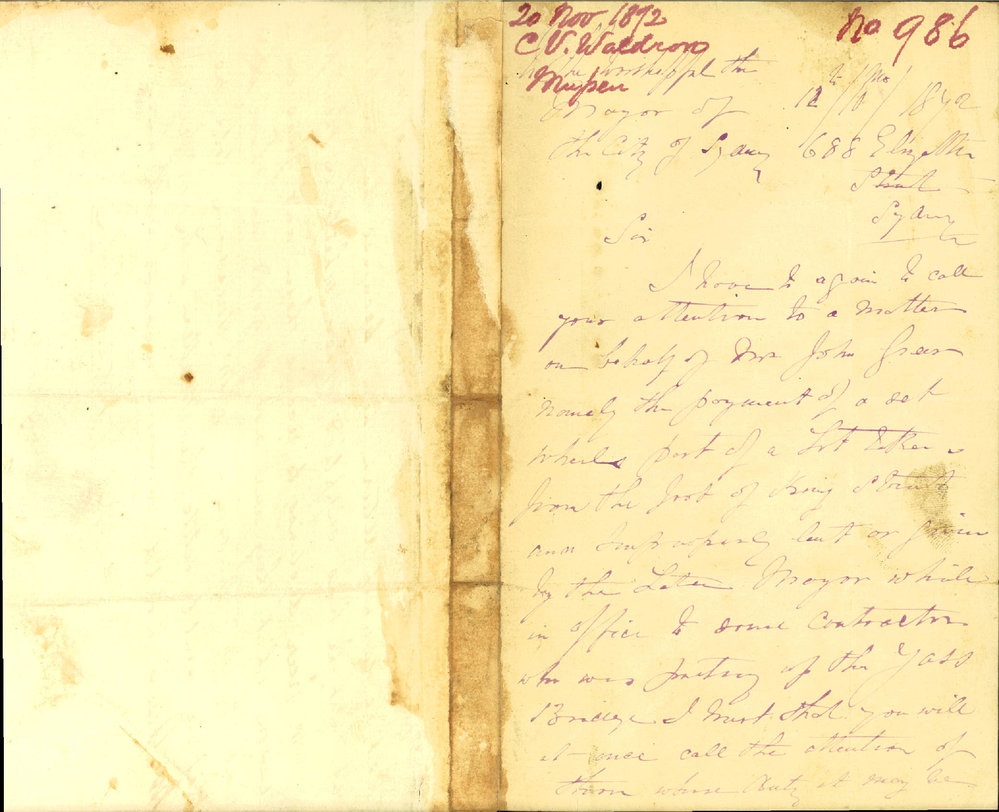 20 Nov. 1872
C. V. Waldron
No 986
the
Mayor of
the City of Sydney
12/10/1872
688 Elizabeth
Street
Sydney
Sir
I have to again to call
your attention to a matter
on behalf of Mr John Greer
namely the payment of a set
wheels part of a lot taken
from the foot of King Street
and improperly lent or given
by the Late Mayor while
in office to some Contractor
who was putting up the Yass
Bridge I trust that you will
at once call the attention of
them whose duty it may be